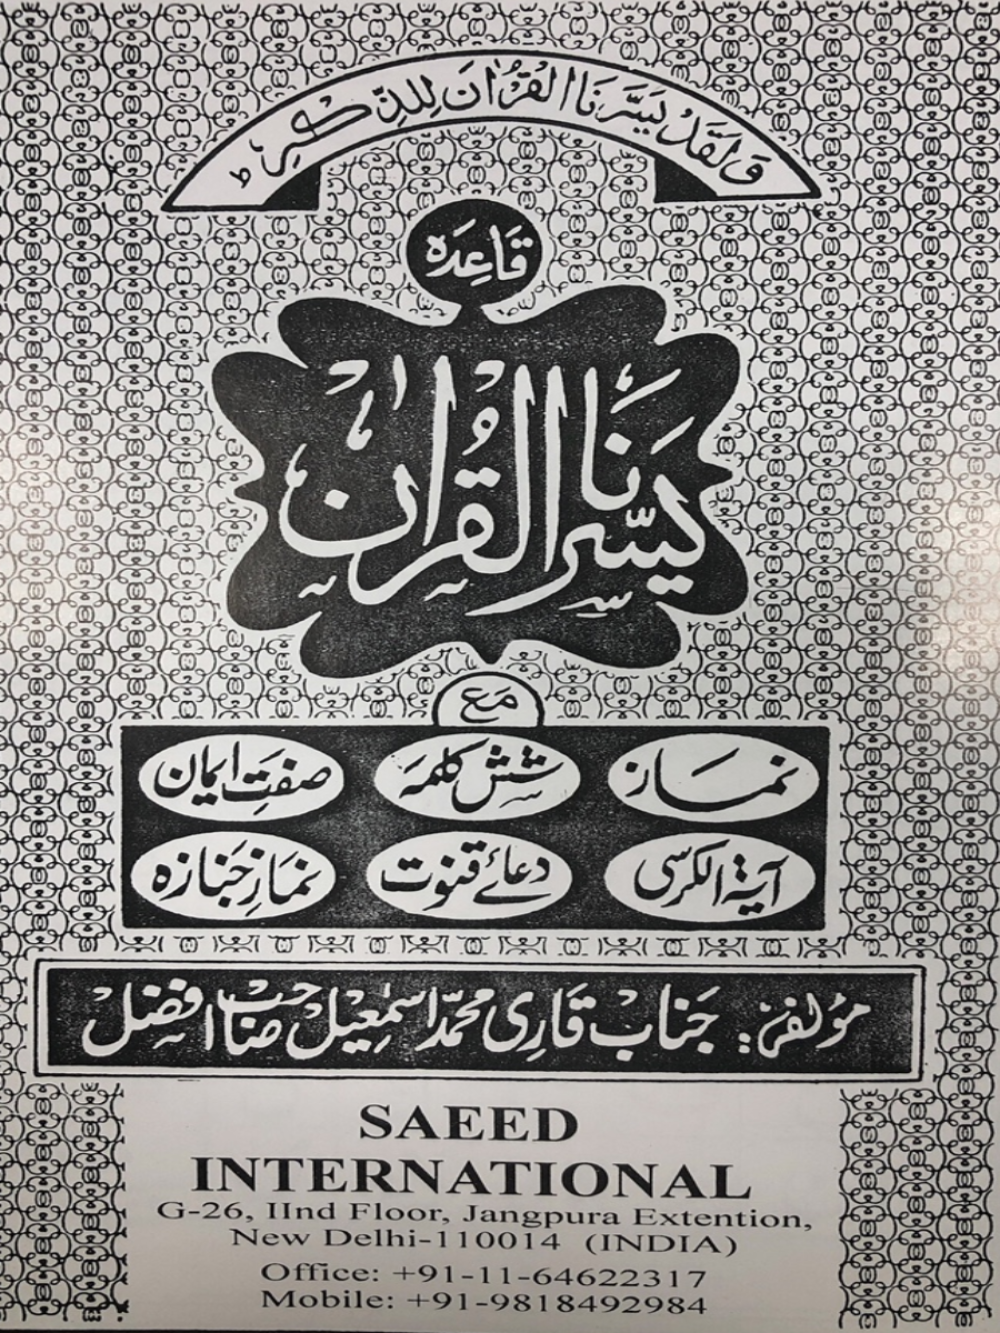 وَلَقَدْ يَسَّرْنَا الْقُرْاٰنَ لِلذِّكْرِ ط
قَاعِدَہ
یَسَّرْنَا الْقُرْاٰن
مَع
نماز
شش کلمہ
صفتِ ایمان
آیۃ الکرسی
دعائے قنوت
نمازِ جنازہ
مؤلفہ: جناب قاری محمد اسمٰعیل صاحب افضل
SAEED
INTERNATIONAL
G-26, IInd Floor, Jangpura Extention,
New Delhi-110014 (INDIA)
Office: +91-11-64622317
Mobile: +91-9818492984